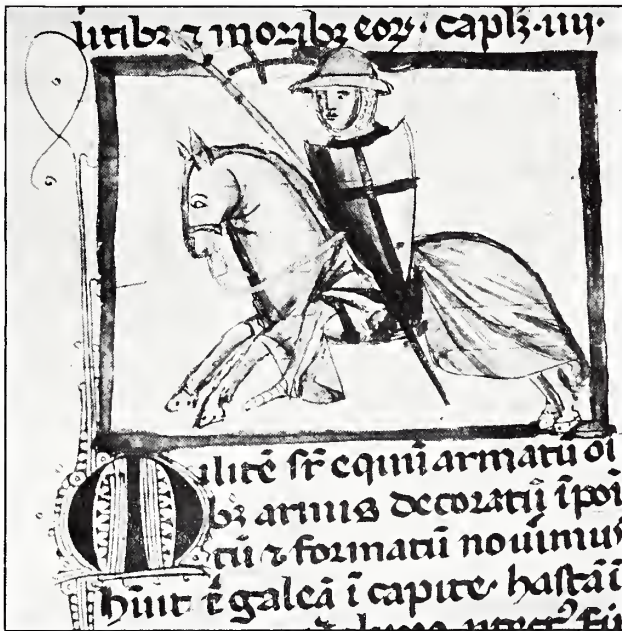 litibꝫ ⁊ moribꝫ eoꝝ · caplꝫ · iiij ·
Militē sr̄ equū armatū oī
bꝫ armis decoratū īpoī
tū ⁊ formatū nouimus
hūit ē galeā ī capite · hastā ī